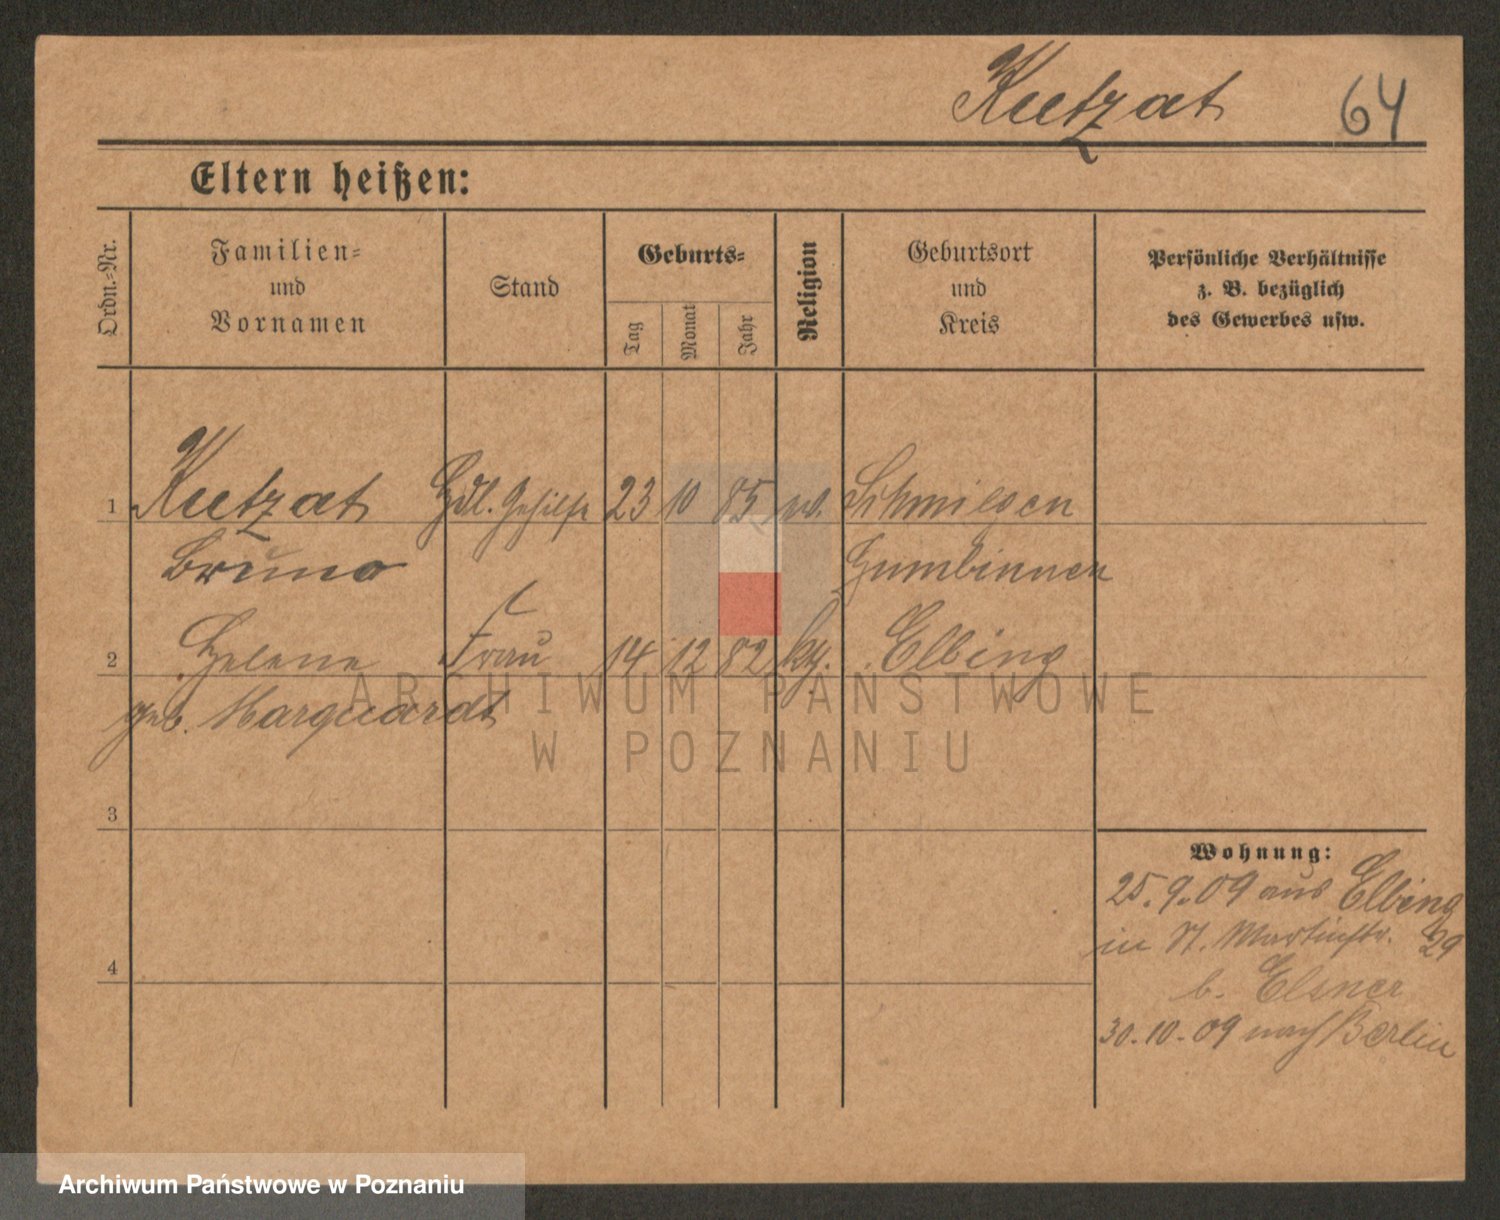 Kutzat 64
Eltern heißen:
Ordn.-Nr.
Familien-
und
Vornamen
Stand
Geburts-
Tag
Monat
Jahr
Religion
Geburtsort
und
Kreis
Persönliche Verhältnisse
z. B. bezüglich
des Gewerbes usw.
1 Kutzat Hdl. Gehilfe 23 10 85 Schmilgen
Bruno Gumbinnen
2 Helene Frau 14 12 82 kth. Elbing
geb. Marquardt
3
4
Wohnung:
25.9.09 aus Elbing
in St. Martinstr. 29
b. Elsner
30.10.09 nach Berlin
ARCHIWUM PAŃSTWOWE
W POZNANIU
Archiwum Państwowe w Poznaniu